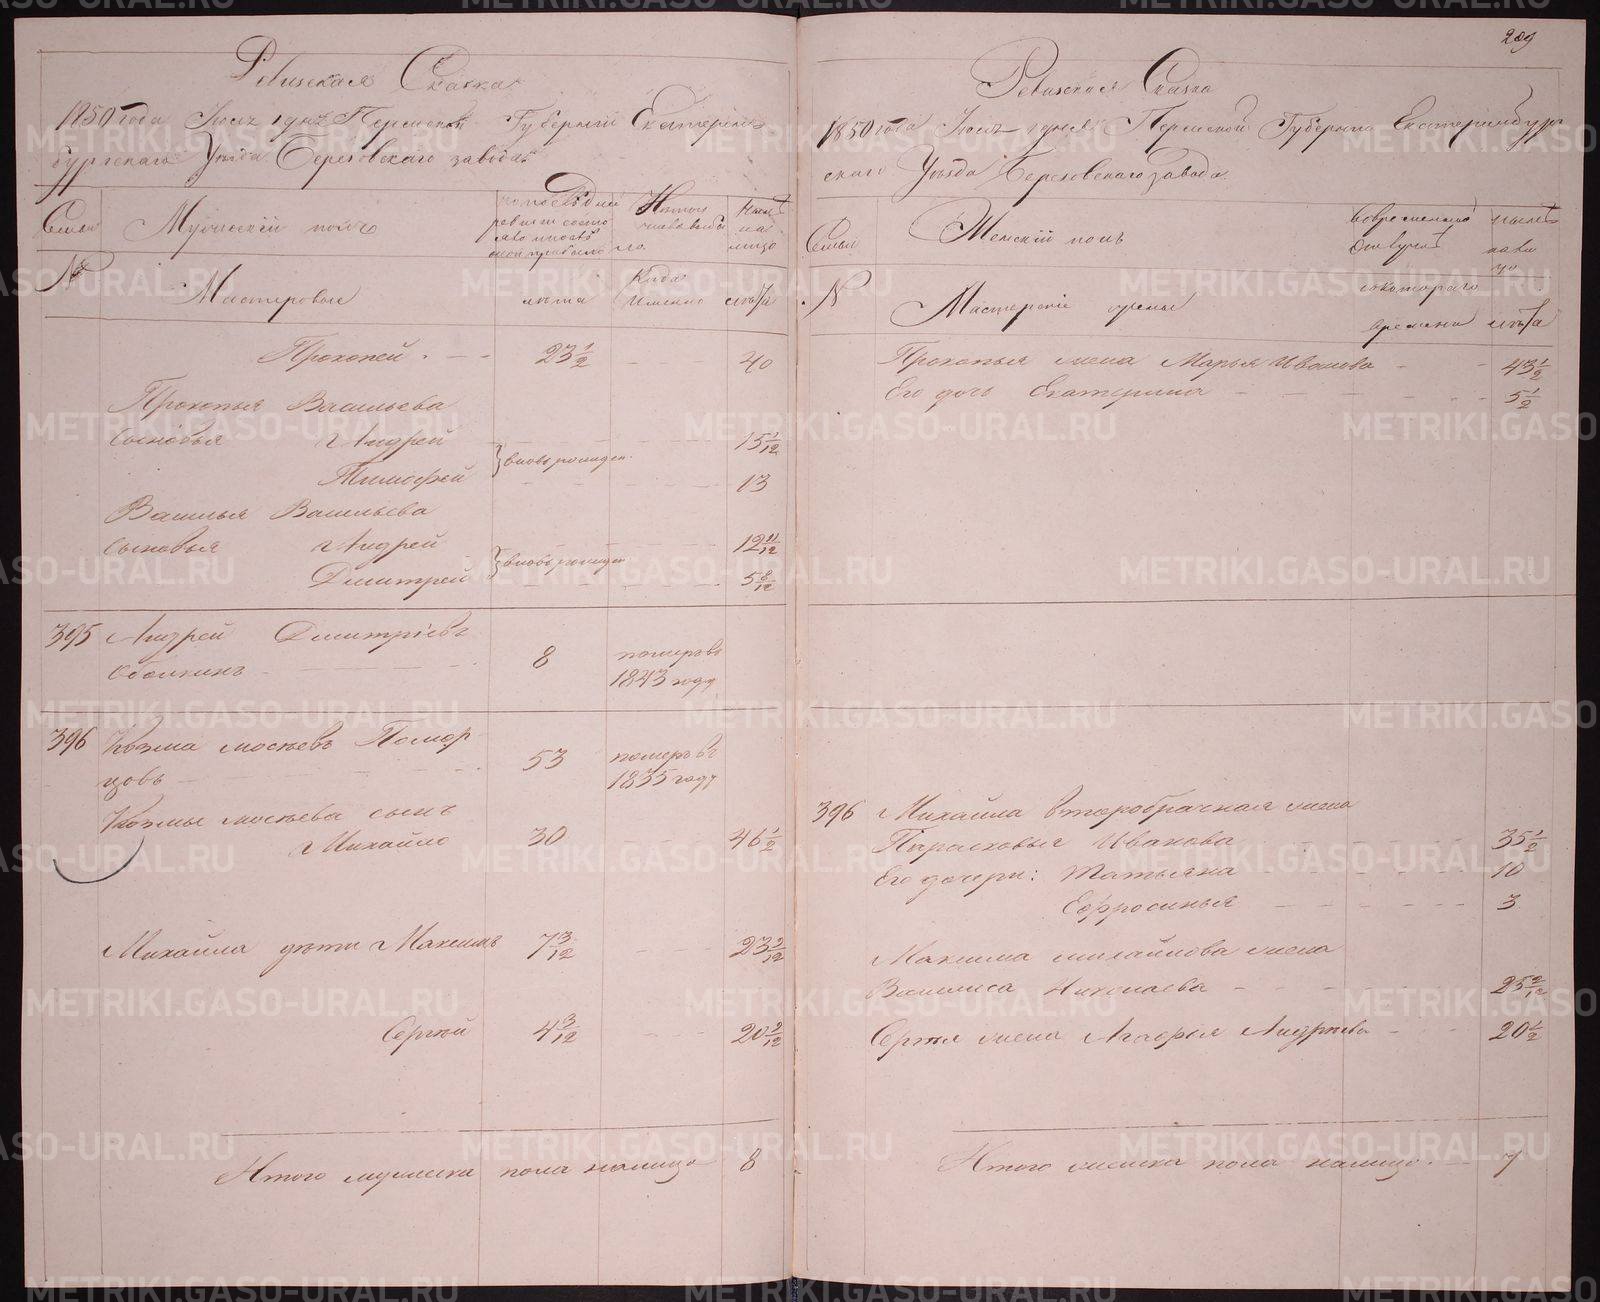 209
Ревизская Сказка
1850 года Июля дня Пермской Губернии Екатерин-
бургскаго Уезда Березовскаго завода
Семьи
Мужескій полъ
по последней
ревизіи состо
яло
Изъ того
числа выбы
ло
Ныне
на
лицо
№
Мастеровые
лета
Когда
именно
лета
Прокопей 23 1/2 40
Прокопья Васильева
сыновья 1 Андрей 15 1/12
вновь рожден.
Тимофей 13
Василья Васильева
сыновья 1 Андрей 12 11/12
вновь рожден
Дмитрей 5 8/12
395 Андрей Дмитріевъ 8 померъ въ
1843 году
396 Козма Мосеевъ Помор 53 померъ въ
цовъ 1835 году
Козмы Мосеева сынъ
1 Михайло 30 46 1/2
Михайла дети 1 Максимъ 7 3/12 23 2/12
Сергей 4 3/12 20 2/12
Итого мужеска пола налицо 8
Ревизская Сказка
1850 года Июля дня Пермской Губерніи Екатеринбург
скаго Уезда Березовскаго завода
Семьи
Женскій полъ
Во временной
отлучке
ныне
нали
цо
№
Мастерскіе жены
съ котораго
времени
лета
Прокопья жена Марья Иванова 43 1/2
Его дочь Екатерина 5 1/2
396 Михайла второбрачная жена
Парасковья Иванова 35 1/2
Его дочери: Татьяна 10
Ефросинья 3
Максима Михайлова жена
Василиса Николаева 25 2/12
Сергея жена Агафья Андреева 20 1/2
Итого женска пола налицо 7
METRIKI.GASO-URAL.RU